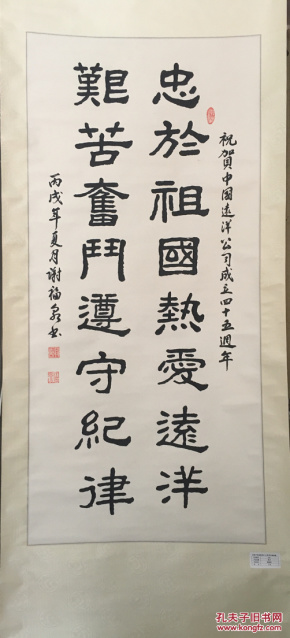 祝賀中国遠洋公司成立四十五週年
忠於祖國熱愛遠洋
艱苦奮鬥遵守紀律
丙戌年夏月謝福泉书
孔夫子旧书网
www.kongfz.com